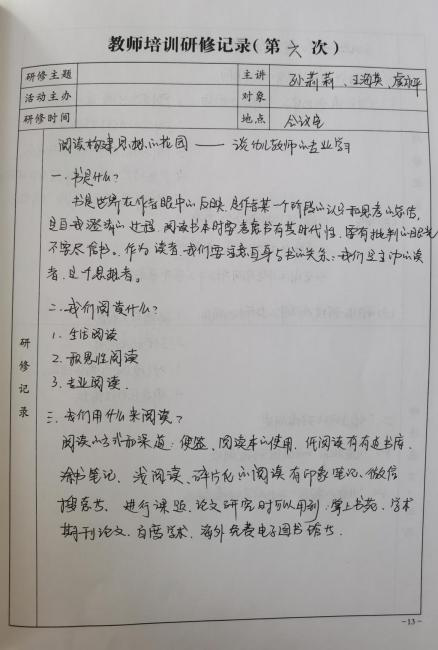 教师培训研修记录(第六次)
研修主题 主讲 孙莉莉、王海英、虞永平
活动主办 对象
研修时间 地点 会议室
研修记录
阅读构建思想的花园——谈幼儿教师的专业学习
一.书是什么?
书是世界在作者眼中的反映,是作者某一个阶段的认识和思考的总结,
是自我逐渐的过程.阅读书本时要考虑书有其时代性,要有批判的眼光
不要尽信书。作为读者,我们要注意自身与书的关系:我们是主动的读
者,是个思想者。
二.我们阅读什么?
1.生活阅读
2.教思性阅读
3.专业阅读.
三.我们用什么来阅读?
阅读的方式和渠道:便签,阅读本的使用.纸阅读有有边书店.
涂书笔记.浅阅读.碎片化的阅读有印象笔记、微信
搜索书.进行课题、论文研究时可以用到:掌上书苑、学术
期刊论文.百度学术.海外免费电子图书馆书.
-13-